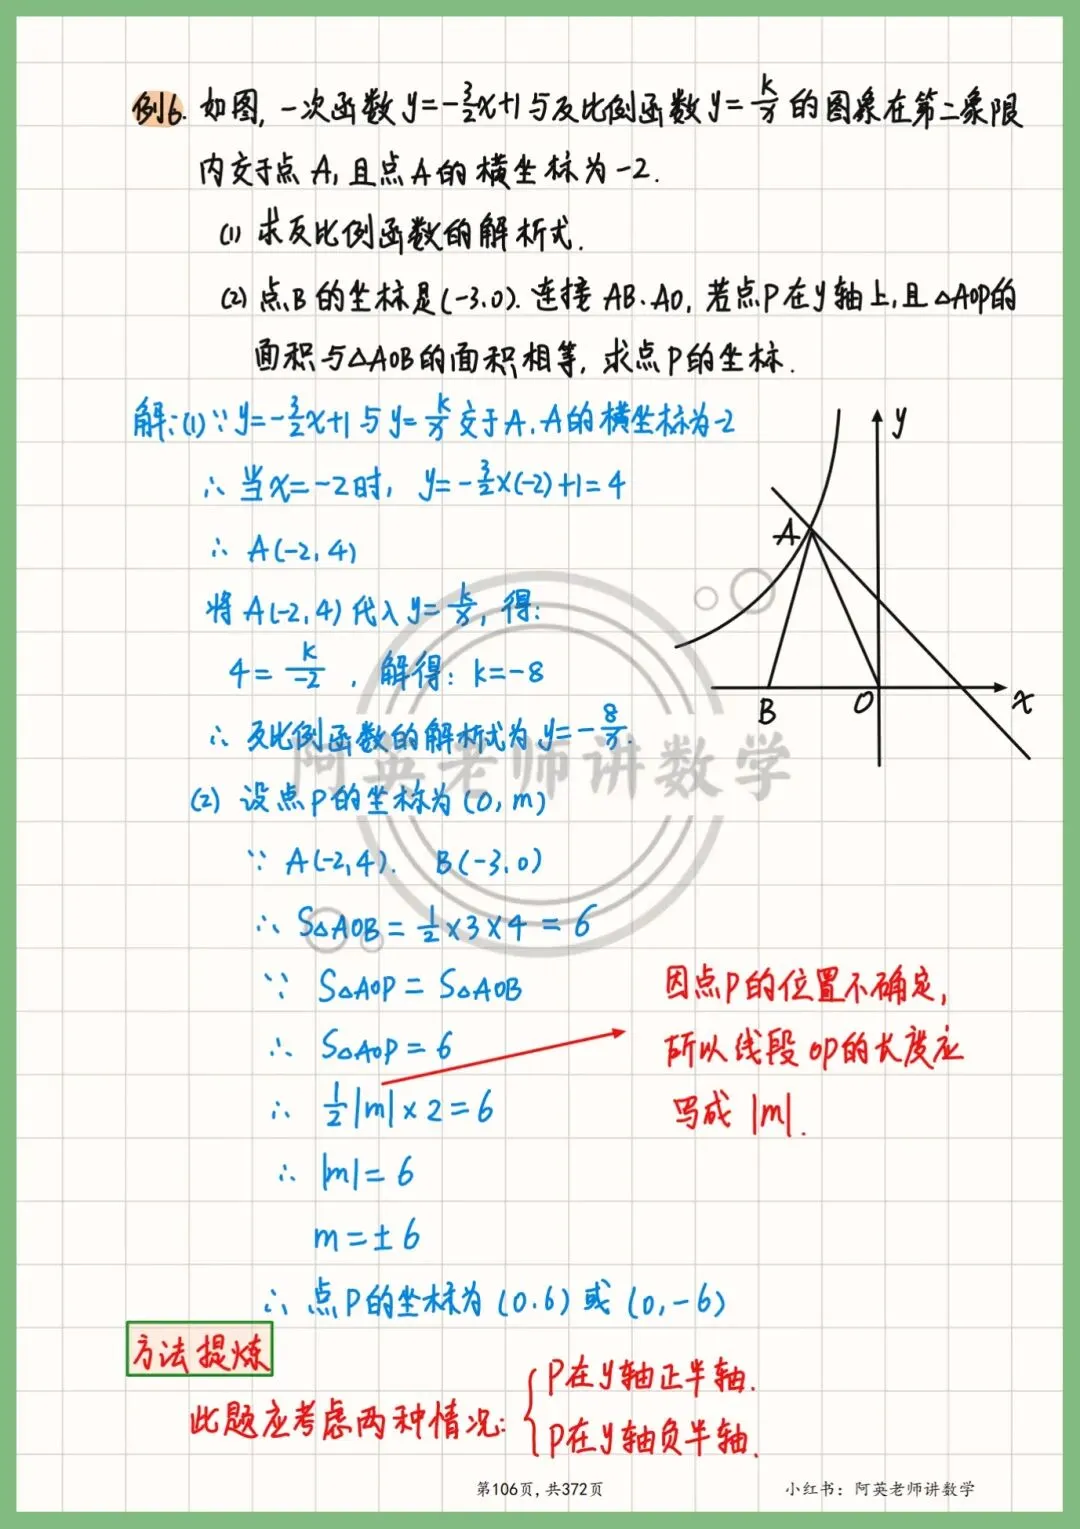 例6. 如图,一次函数y=-3/2x+1与反比例函数y=k/x的图象在第二象限
内交于点A,且点A的横坐标为-2.
(1) 求反比例函数的解析式.
(2) 点B的坐标是(-3,0).连接AB、AO,若点P在y轴上,且△AOP的
面积与△AOB的面积相等,求点P的坐标.
解:(1)∵y=-3/2x+1与y=k/x交于A,A的横坐标为-2
∴ 当x=-2时, y=-3/2×(-2)+1=4
∴ A(-2,4)
将A(-2,4)代入y=k/x,得:
4=k/-2 , 解得:k=-8
∴ 反比例函数的解析式为y=-8/x.
(2) 设点P的坐标为(0,m)
∵ A(-2,4). B(-3,0)
∴ S△AOB=1/2×3×4=6
∵ S△AOP=S△AOB
∴ S△AOP=6
∴ 1/2|m|×2=6
∴ |m|=6
m=±6
∴ 点P的坐标为(0,6)或(0,-6)
y
A
B
O
x
阿英老师讲数学
因点P的位置不确定,
所以线段OP的长度应
写成 |m|.
方法提炼
此题应考虑两种情况:
P在y轴正半轴.
P在y轴负半轴.
第106页,共372页
小红书:阿英老师讲数学